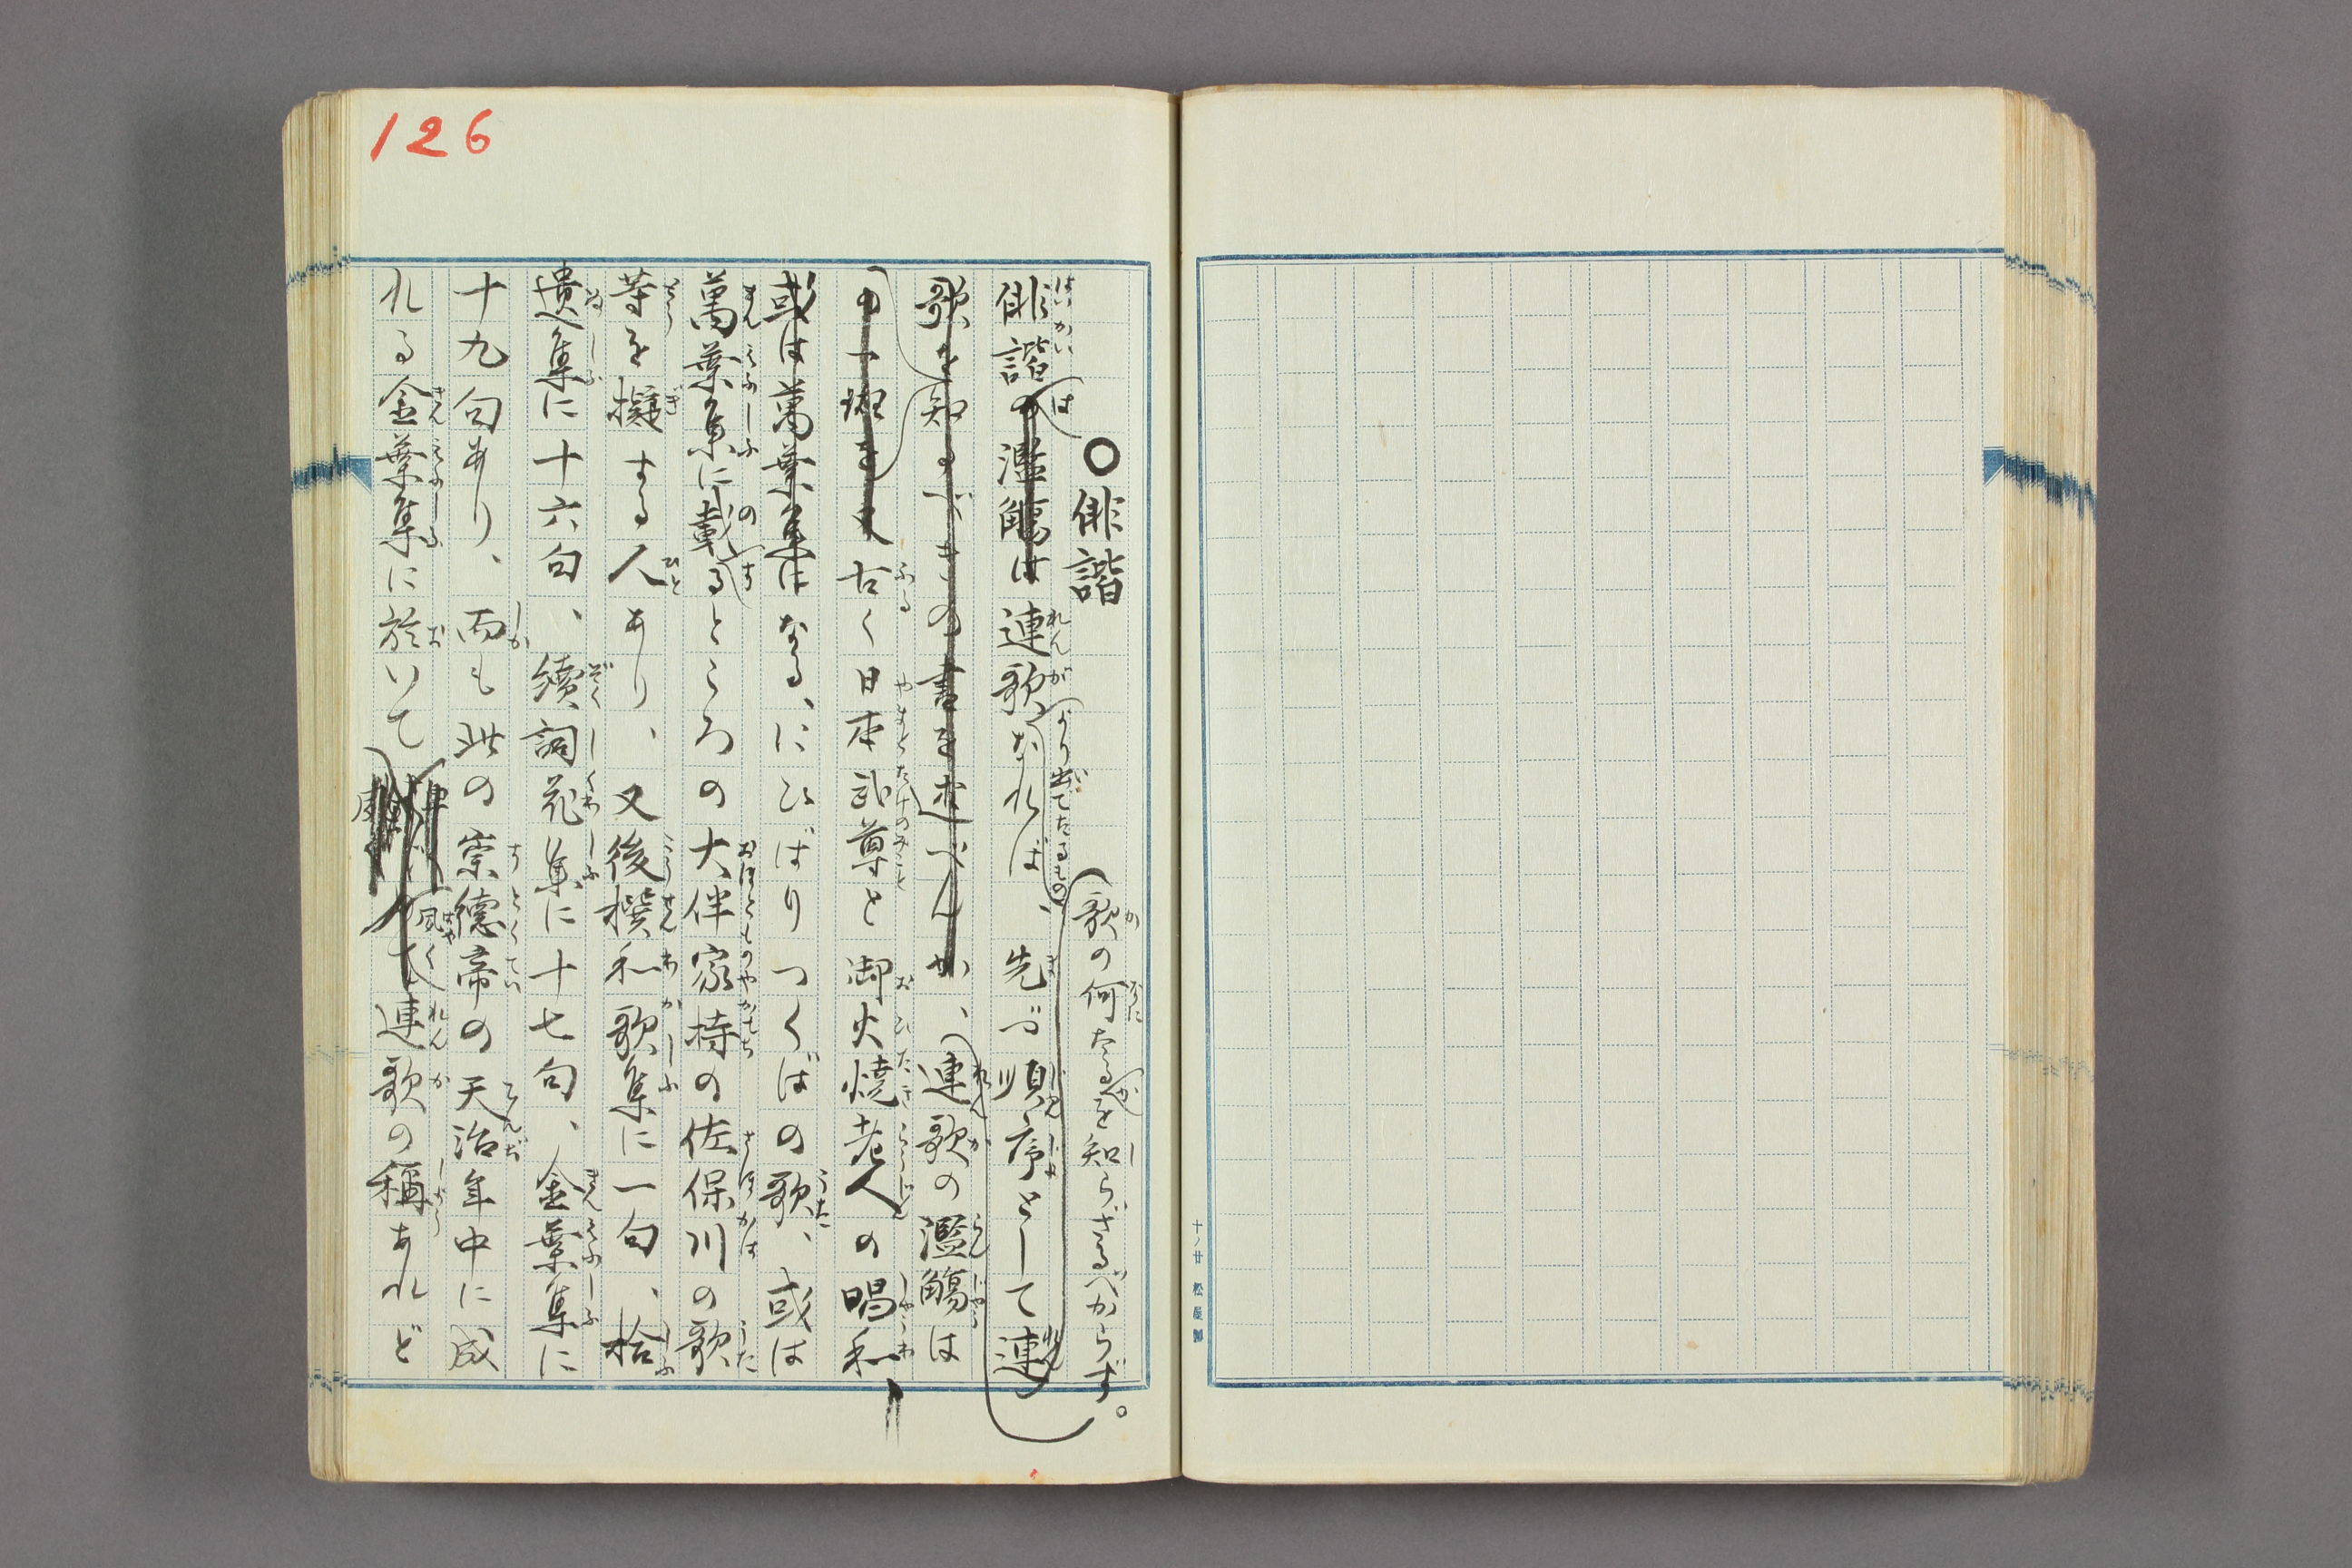 126
〇俳諧
俳諧は連歌より出でたるものなれば、先づ順序として連
歌の何たるかを知らざるべからず。
連歌の濫觴は
古く日本武尊と御火焼老人の唱和
或は萬葉集になる、にひばりつくばの歌、或は
萬葉集に載するところの大伴家持の佐保川の歌
等を擬する人あり、又後撰和歌集に一句、拾
遺集に十六句、續詞花集に十七句、金葉集に
十九句あり、而も此の崇德帝の天治年中に成
れる金葉集に於いて夙く連歌の稱あれど
十ノ廿 松屋製